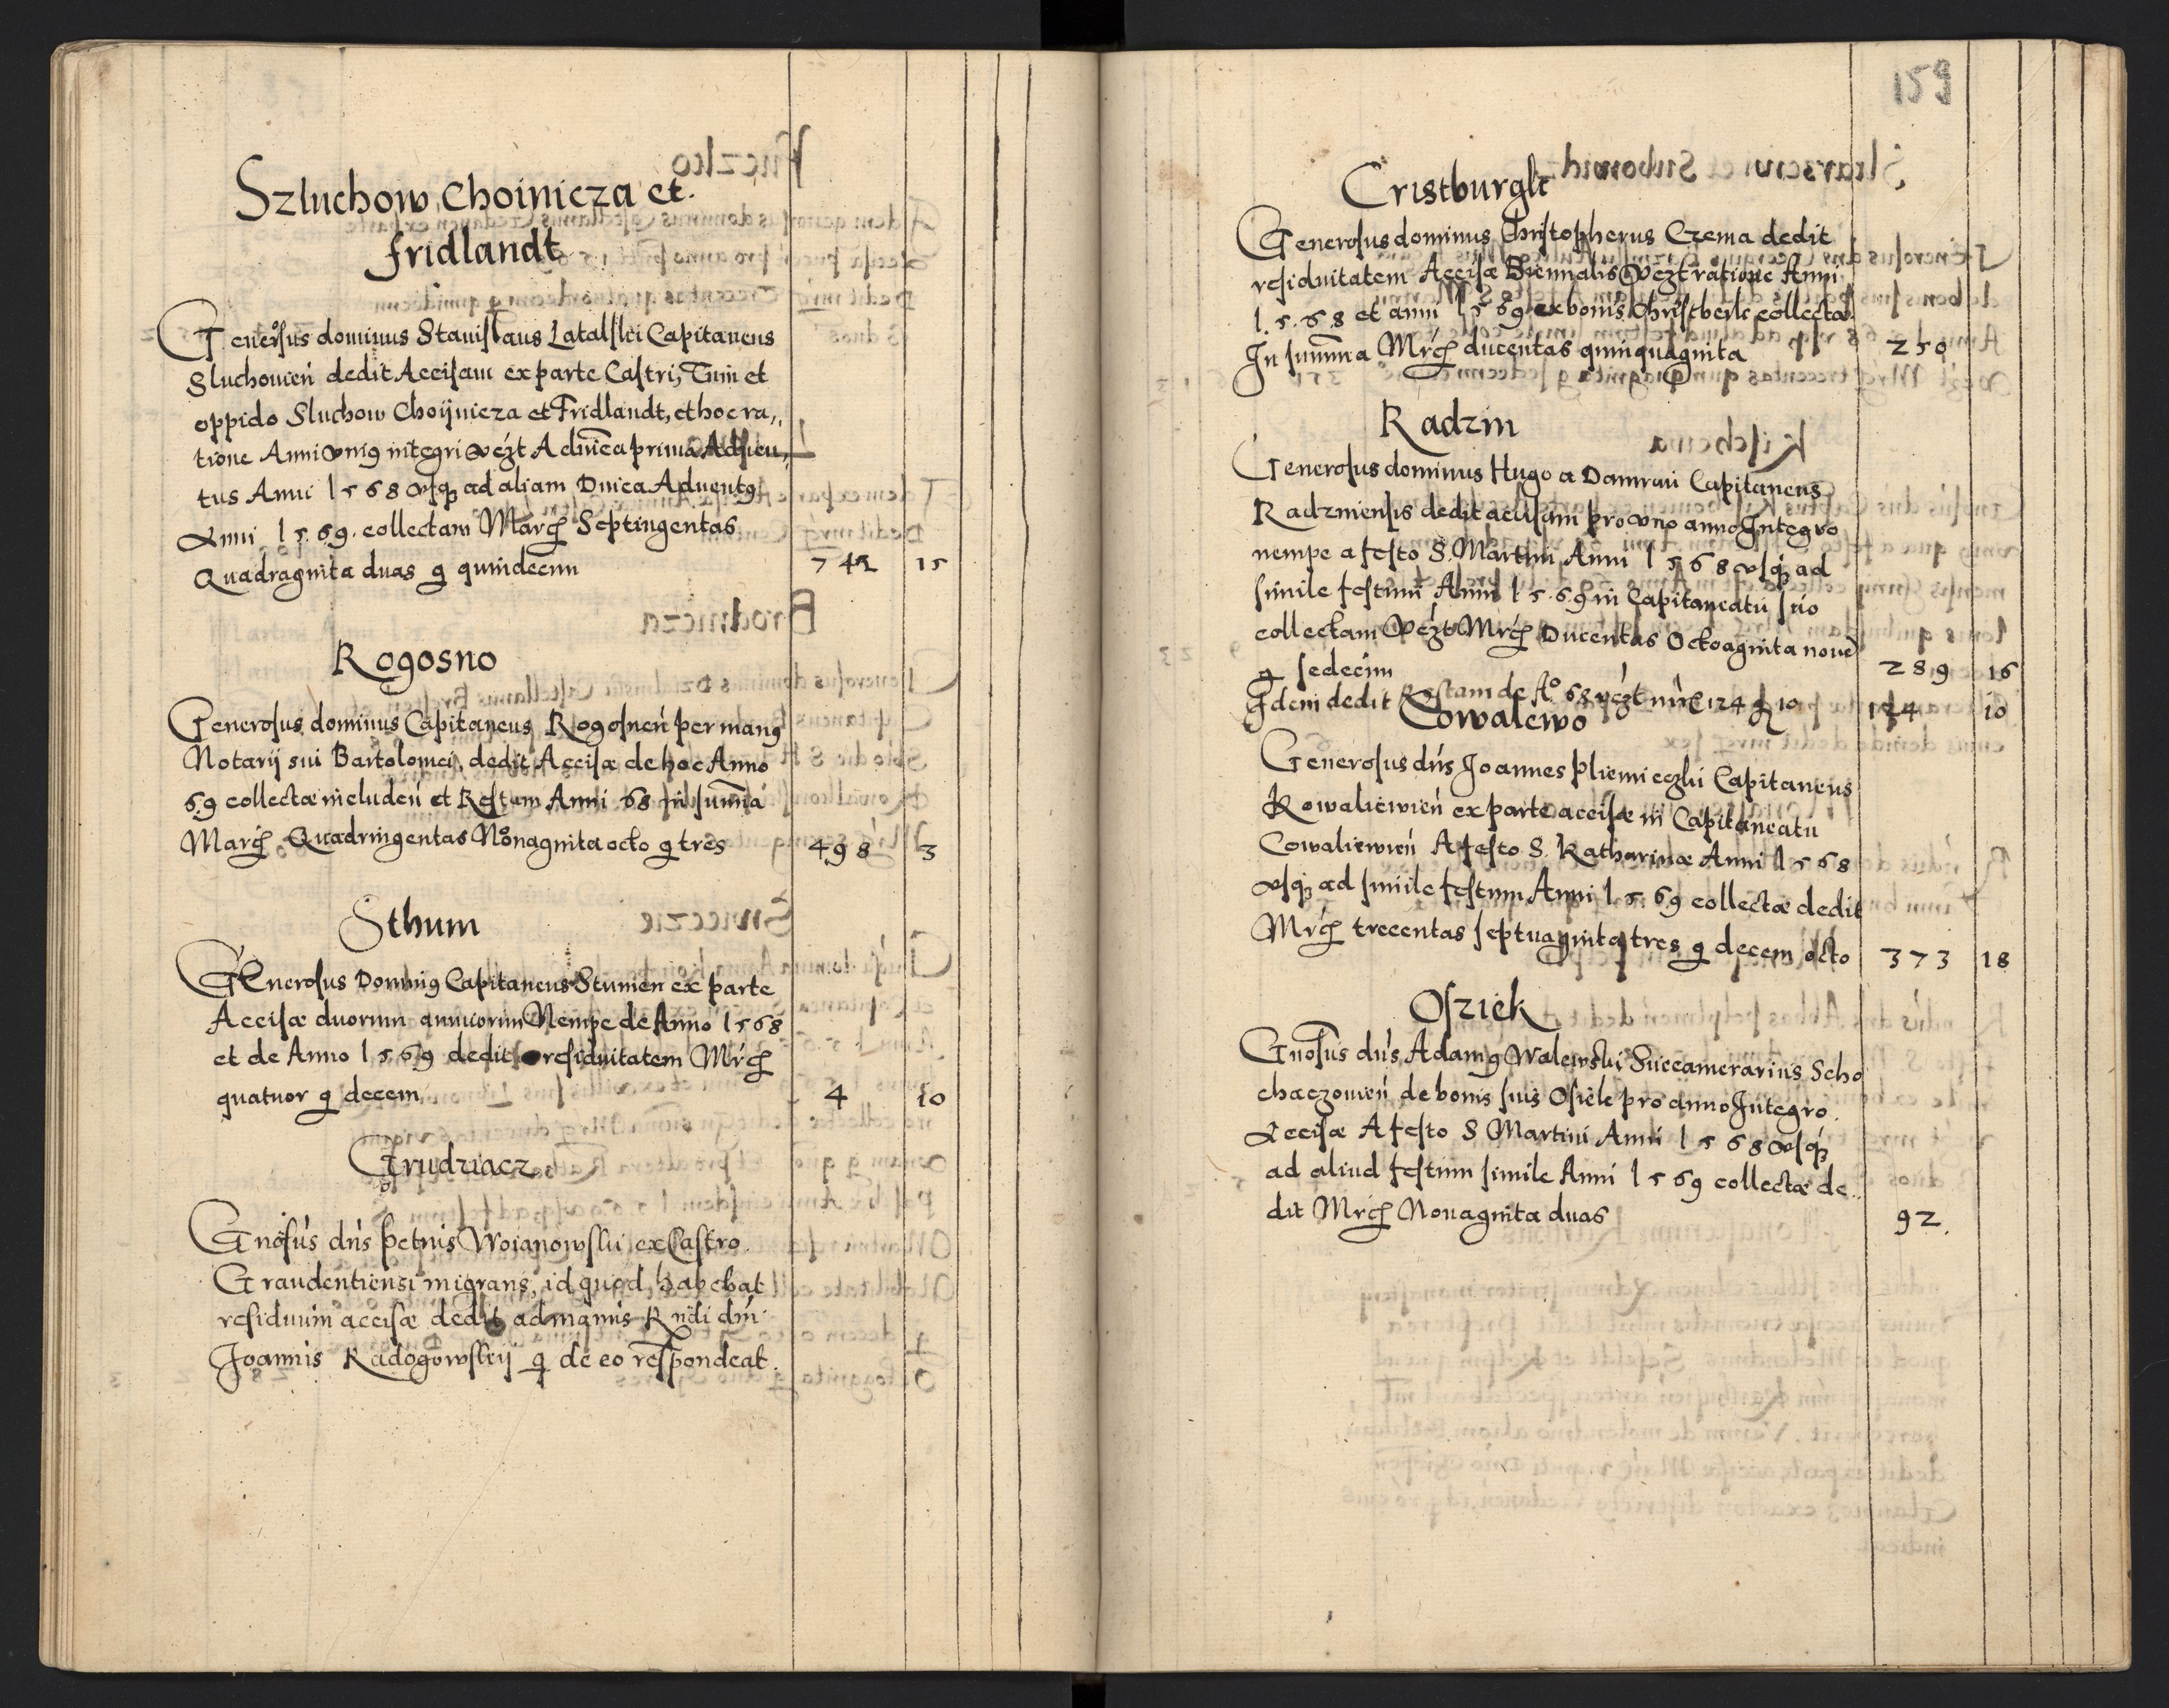 Szluchow Choinicza et
fridlandt
Generosus dominus Stanislaus Latalski Capitaneus
Sluchovień dedit Accisam ex parte Castri, Tum et
oppido Sluchow Choijnicza et Fridlandt, et hoc ra„
tione Anni vniꝯ integri vezt A dnica prima Aduen„
tus Anni 1568 vsqꝫ ad aliam Dnica Aduentꝯ
Anni 1569. collectam Marcꝭ Septingentas
Quadraginta duas g quindecim 742 15
Rogosno
Generosus dominus Capitaneus Rogosneń per manꝯ
Notarij sui Bartolomei, dedit Accisæ de hoc Anno
69 collectæ includeń et Restam Anni 68 in sum̄a
Marcꝭ Quadringentas Nonaginta octo g tres 498 3
Sthum
GEnerosus Dominꝯ Capitaneus Stumeń ex parte
Accisæ duorum annuorum Nempe de Anno 1568
et de Anno 1569 dedit residuitatem Mrcꝭ
quatuor g decem 4 10
Grudziacz
Gnosus dns petrus Woianowski ex Castro
Graudentiensi migrans, id quod habebat
residuum accisæ dedit ad manus Rndi dni
Joannis Radogowskij q de eo respondeat.
159
Cristburgk
Generosus dominus Christopherus Czema dedit
residuitatem Accisæ Biennalis vezt ratione Anni
1568 et anni 1569 ex bonis Christberk collectæ
In sum̄a Mrcꝭ ducentas quinquaginta 250
Radzin
Generosus dominus Hugo a Damraw Capitaneus
Radzinensis dedit accisam pro vno anno Integro
nempe a festo S. Martini Anni 1568 vsqꝫ ad
simile festum Anni 1569 in Capitaneatu suo
collectam vezt Mrcꝭ Ducentas Octoaginta noue
g sedecim 289 16
Idem dedit Restam de Aº 68 vezt mrc 124 g 10 124 10
Cowalewo
Generosus dns Joannes pliemieczki Capitaneus
Kowaliewień ex parte accisæ in Capitaneatu
Cowaliewień A festo S. Katharinæ Anni 1568
vsqꝫ ad simile festum Anni 1569 collectæ dedit
Mrcꝭ trecentas septuaginta tres g decem octo 373 18
Osziek
Gnosus dns Adamꝯ Walewski Succamerarius Scho
chaczowień de bonis suis Osiek pro anno Integro
Accisæ A festo S Martini Anni 1568 vsqꝫ
ad aliud festum simile Anni 1569 collectæ de„
dit Mrcꝭ Nonaginta duas 92.